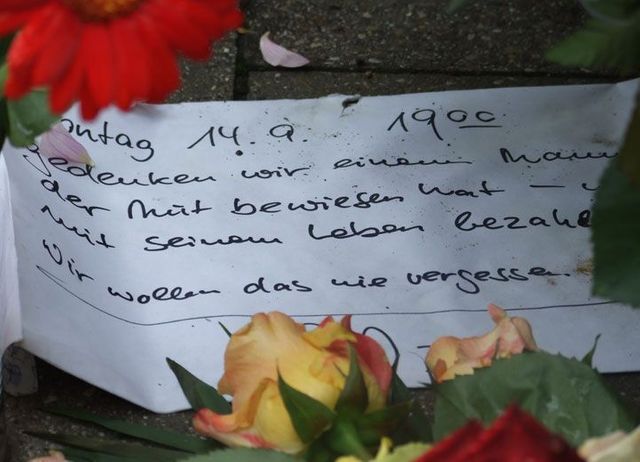 ontag 14.9. 19 00
gedenken wir einem Mann
der Mut bewiesen hat –
mit seinem Leben bezahl
Wir wollen das nie vergessen.